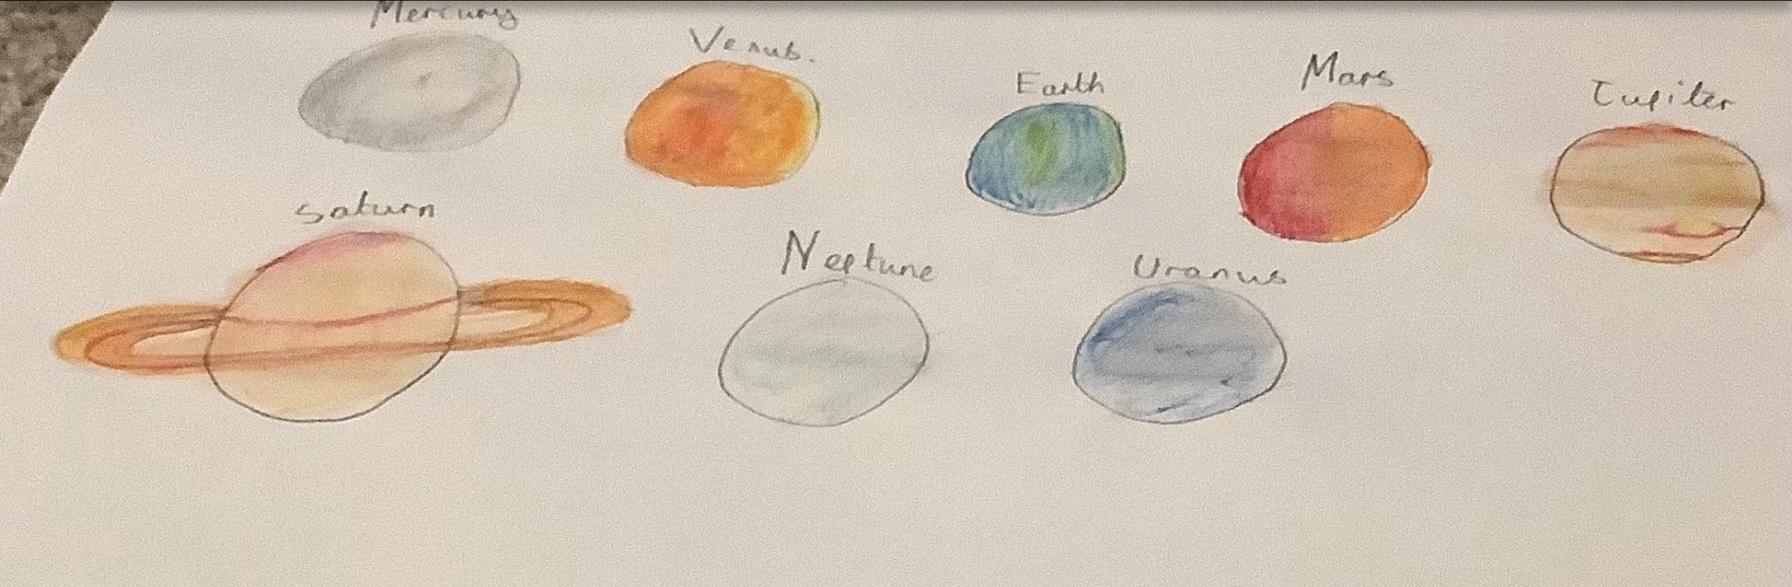 Mercury
Venus.
Earth
Mars
Jupiter
Saturn
Neptune
Uranus